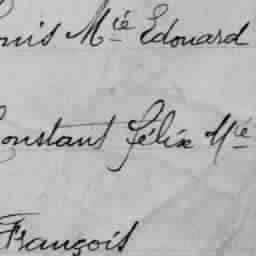 ouis Mié Edouard
Constant Félix Mié
François